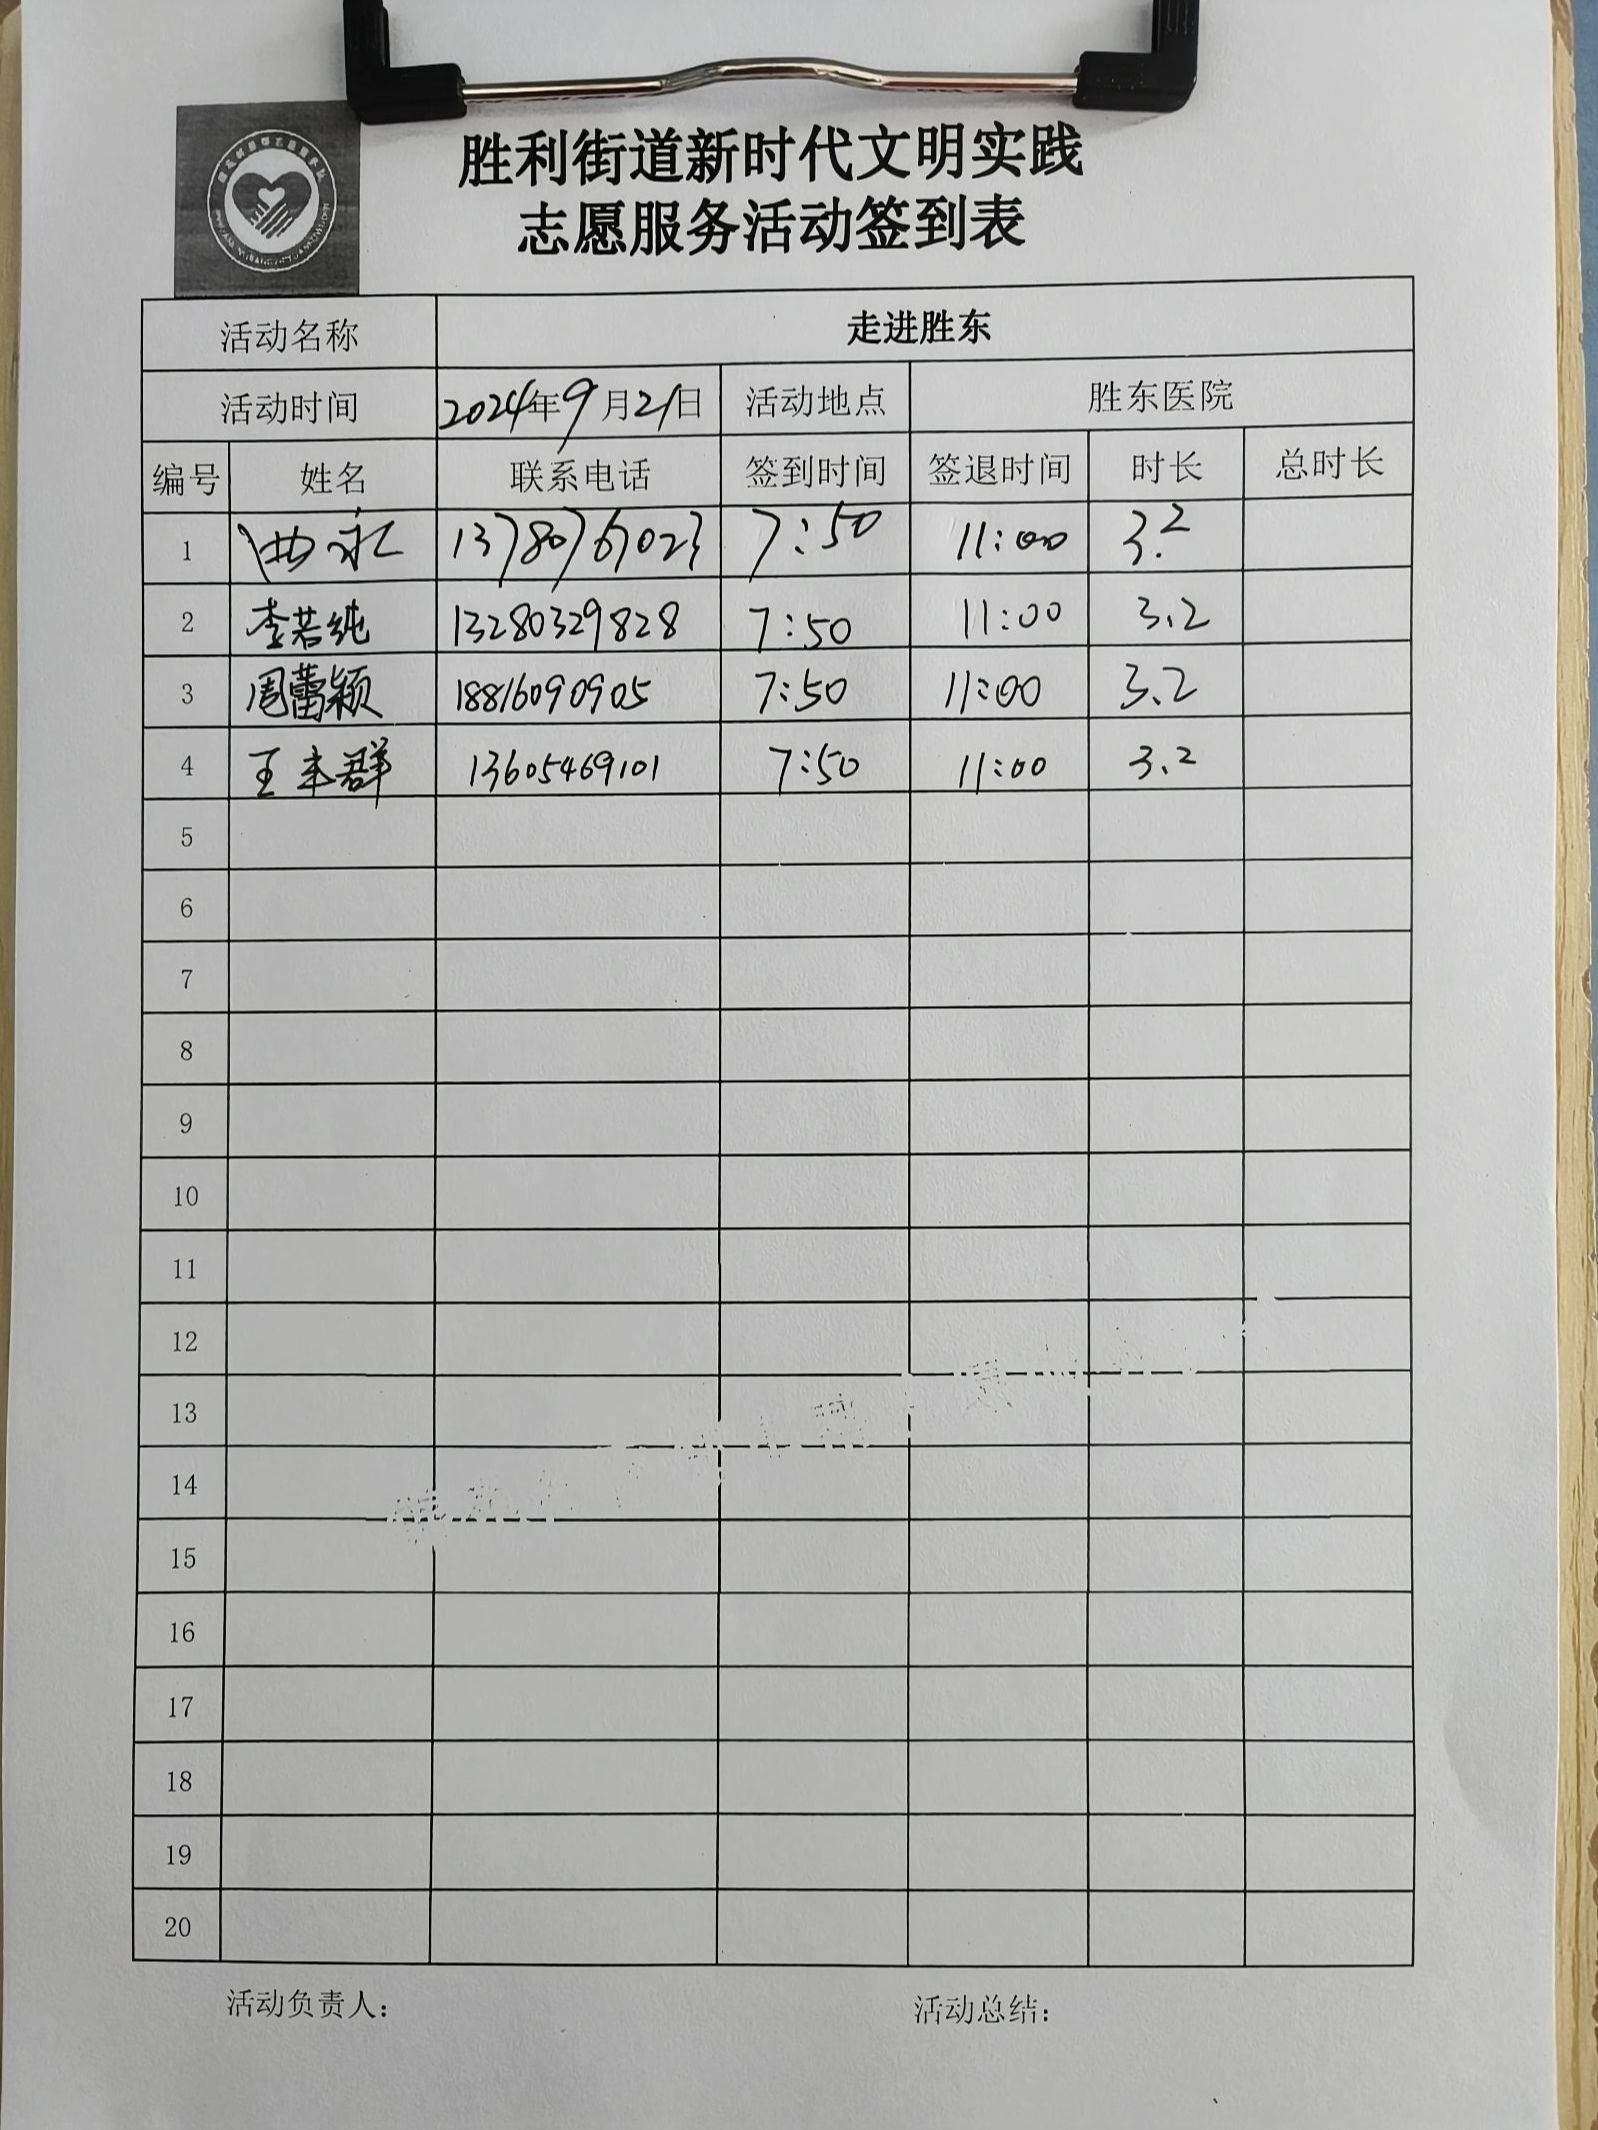 胜利街道新时代文明实践
志愿服务活动签到表
活动名称 走进胜东
活动时间 2024年9月21日 活动地点 胜东医院
编号 姓名 联系电话 签到时间 签退时间 时长 总时长
1 13780767023 7:50 11:00 3.2
2 李若纯 13280329828 7:50 11:00 3.2
3 周蕾颖 18816090905 7:50 11:00 3.2
4 王丰群 13605469101 7:50 11:00 3.2
5
6
7
8
9
10
11
12
13
14
15
16
17
18
19
20
活动负责人: 活动总结: